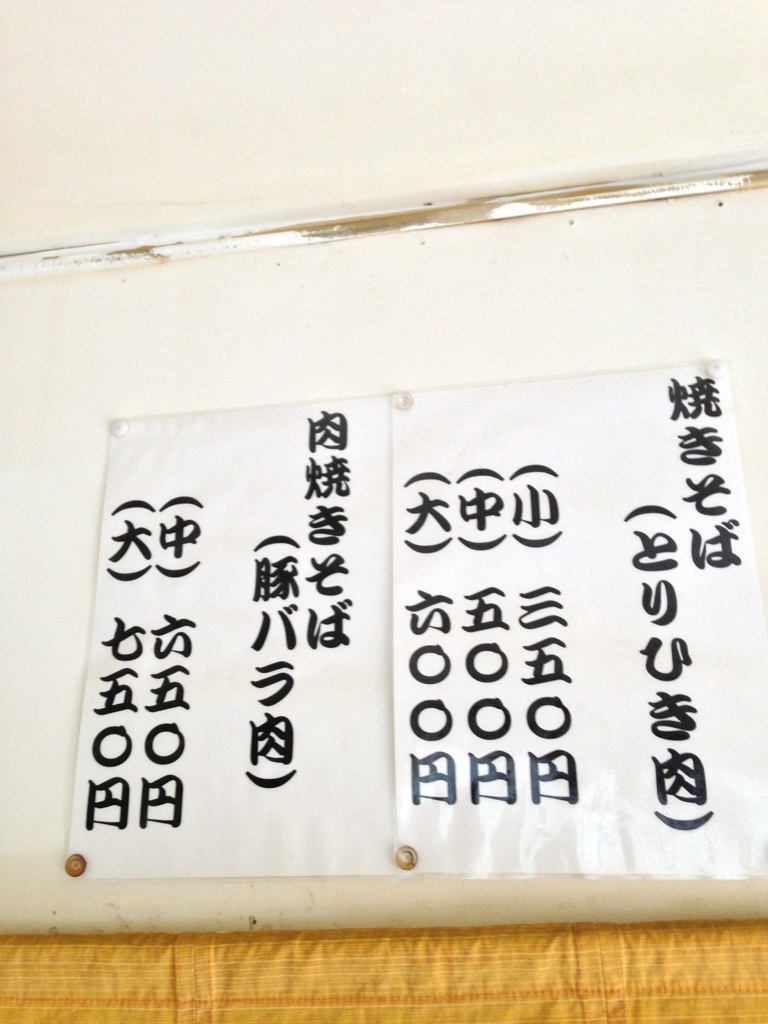 焼きそば
(とりひき肉)
(小) 三五〇円
(中) 五〇〇円
(大) 六〇〇円
肉焼きそば
(豚バラ肉)
(中) 六五〇円
(大) 七五〇円